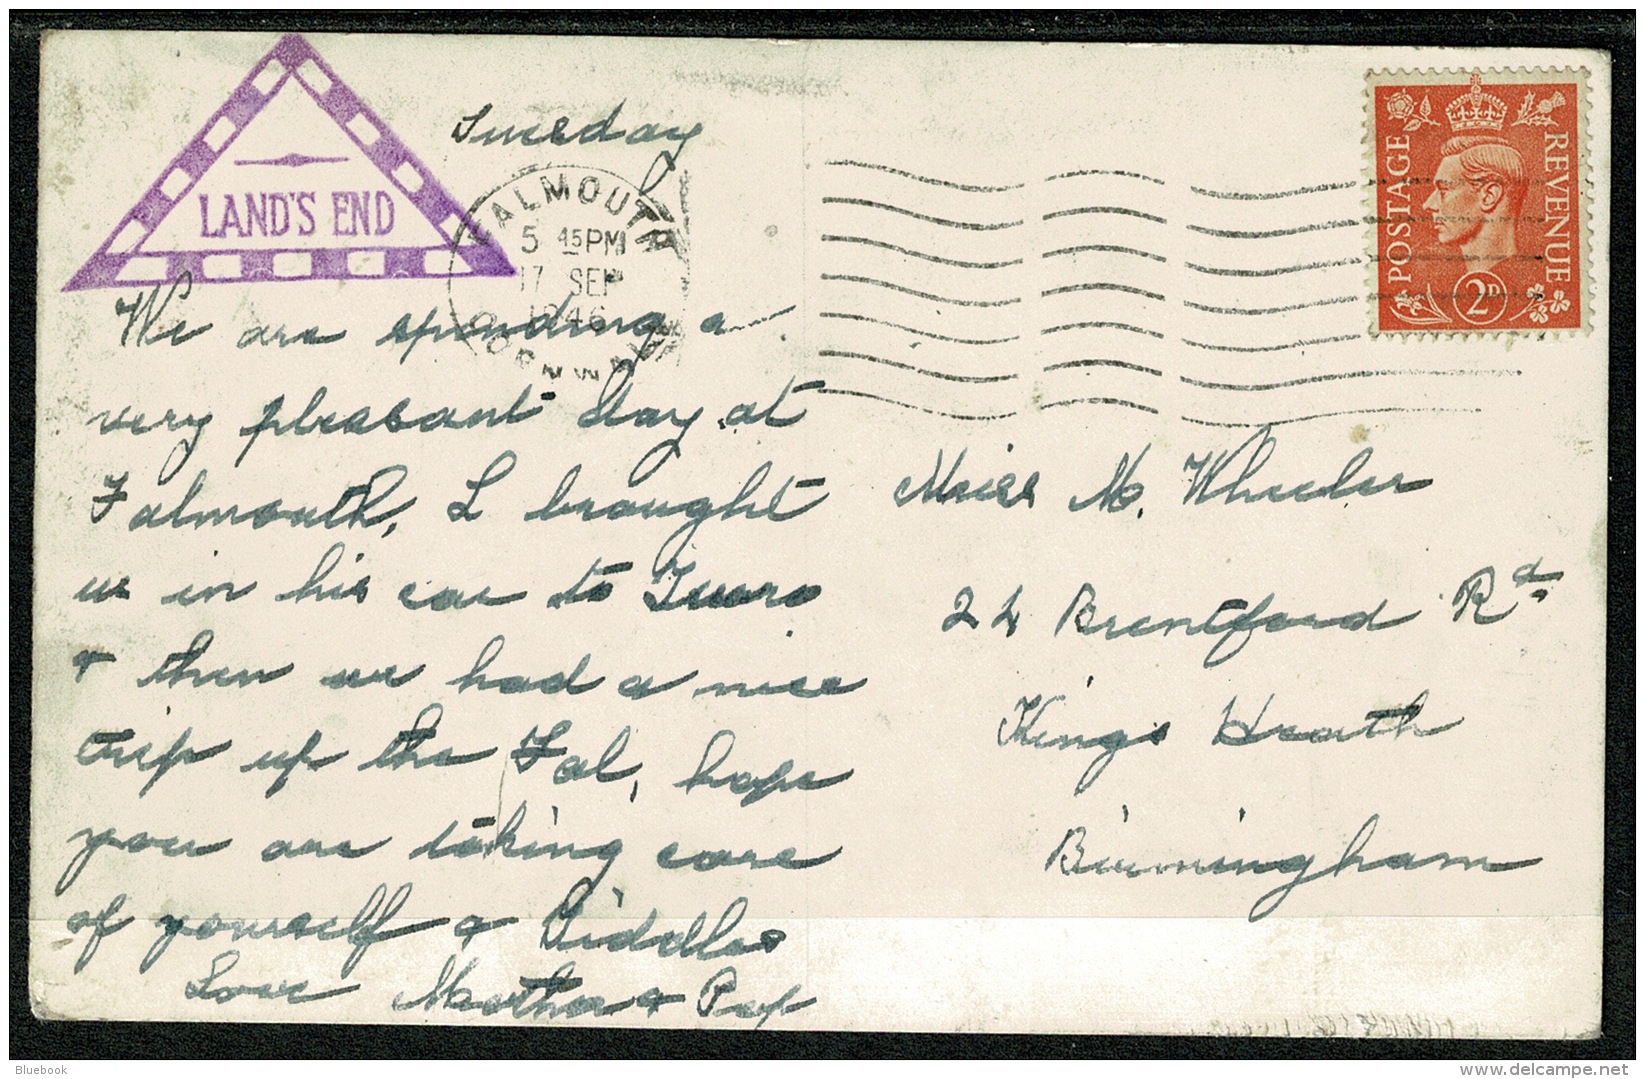 LAND'S END
Tuesday
FALMOUTH
5 45PM
17 SEP
1946
CORNWALL
POSTAGE
REVENUE
2D
We are spending a
very pleasant day at
Falmouth, L brought
us in his car to Truro
& then we had a nice
trip up the Fal, hope
you are taking care
of yourself & Tiddles
Love Mother & Pop
Miss M. Wheeler
24 Brentford Rd.
Kings Heath
Birmingham
Bluebook
delcampe.net